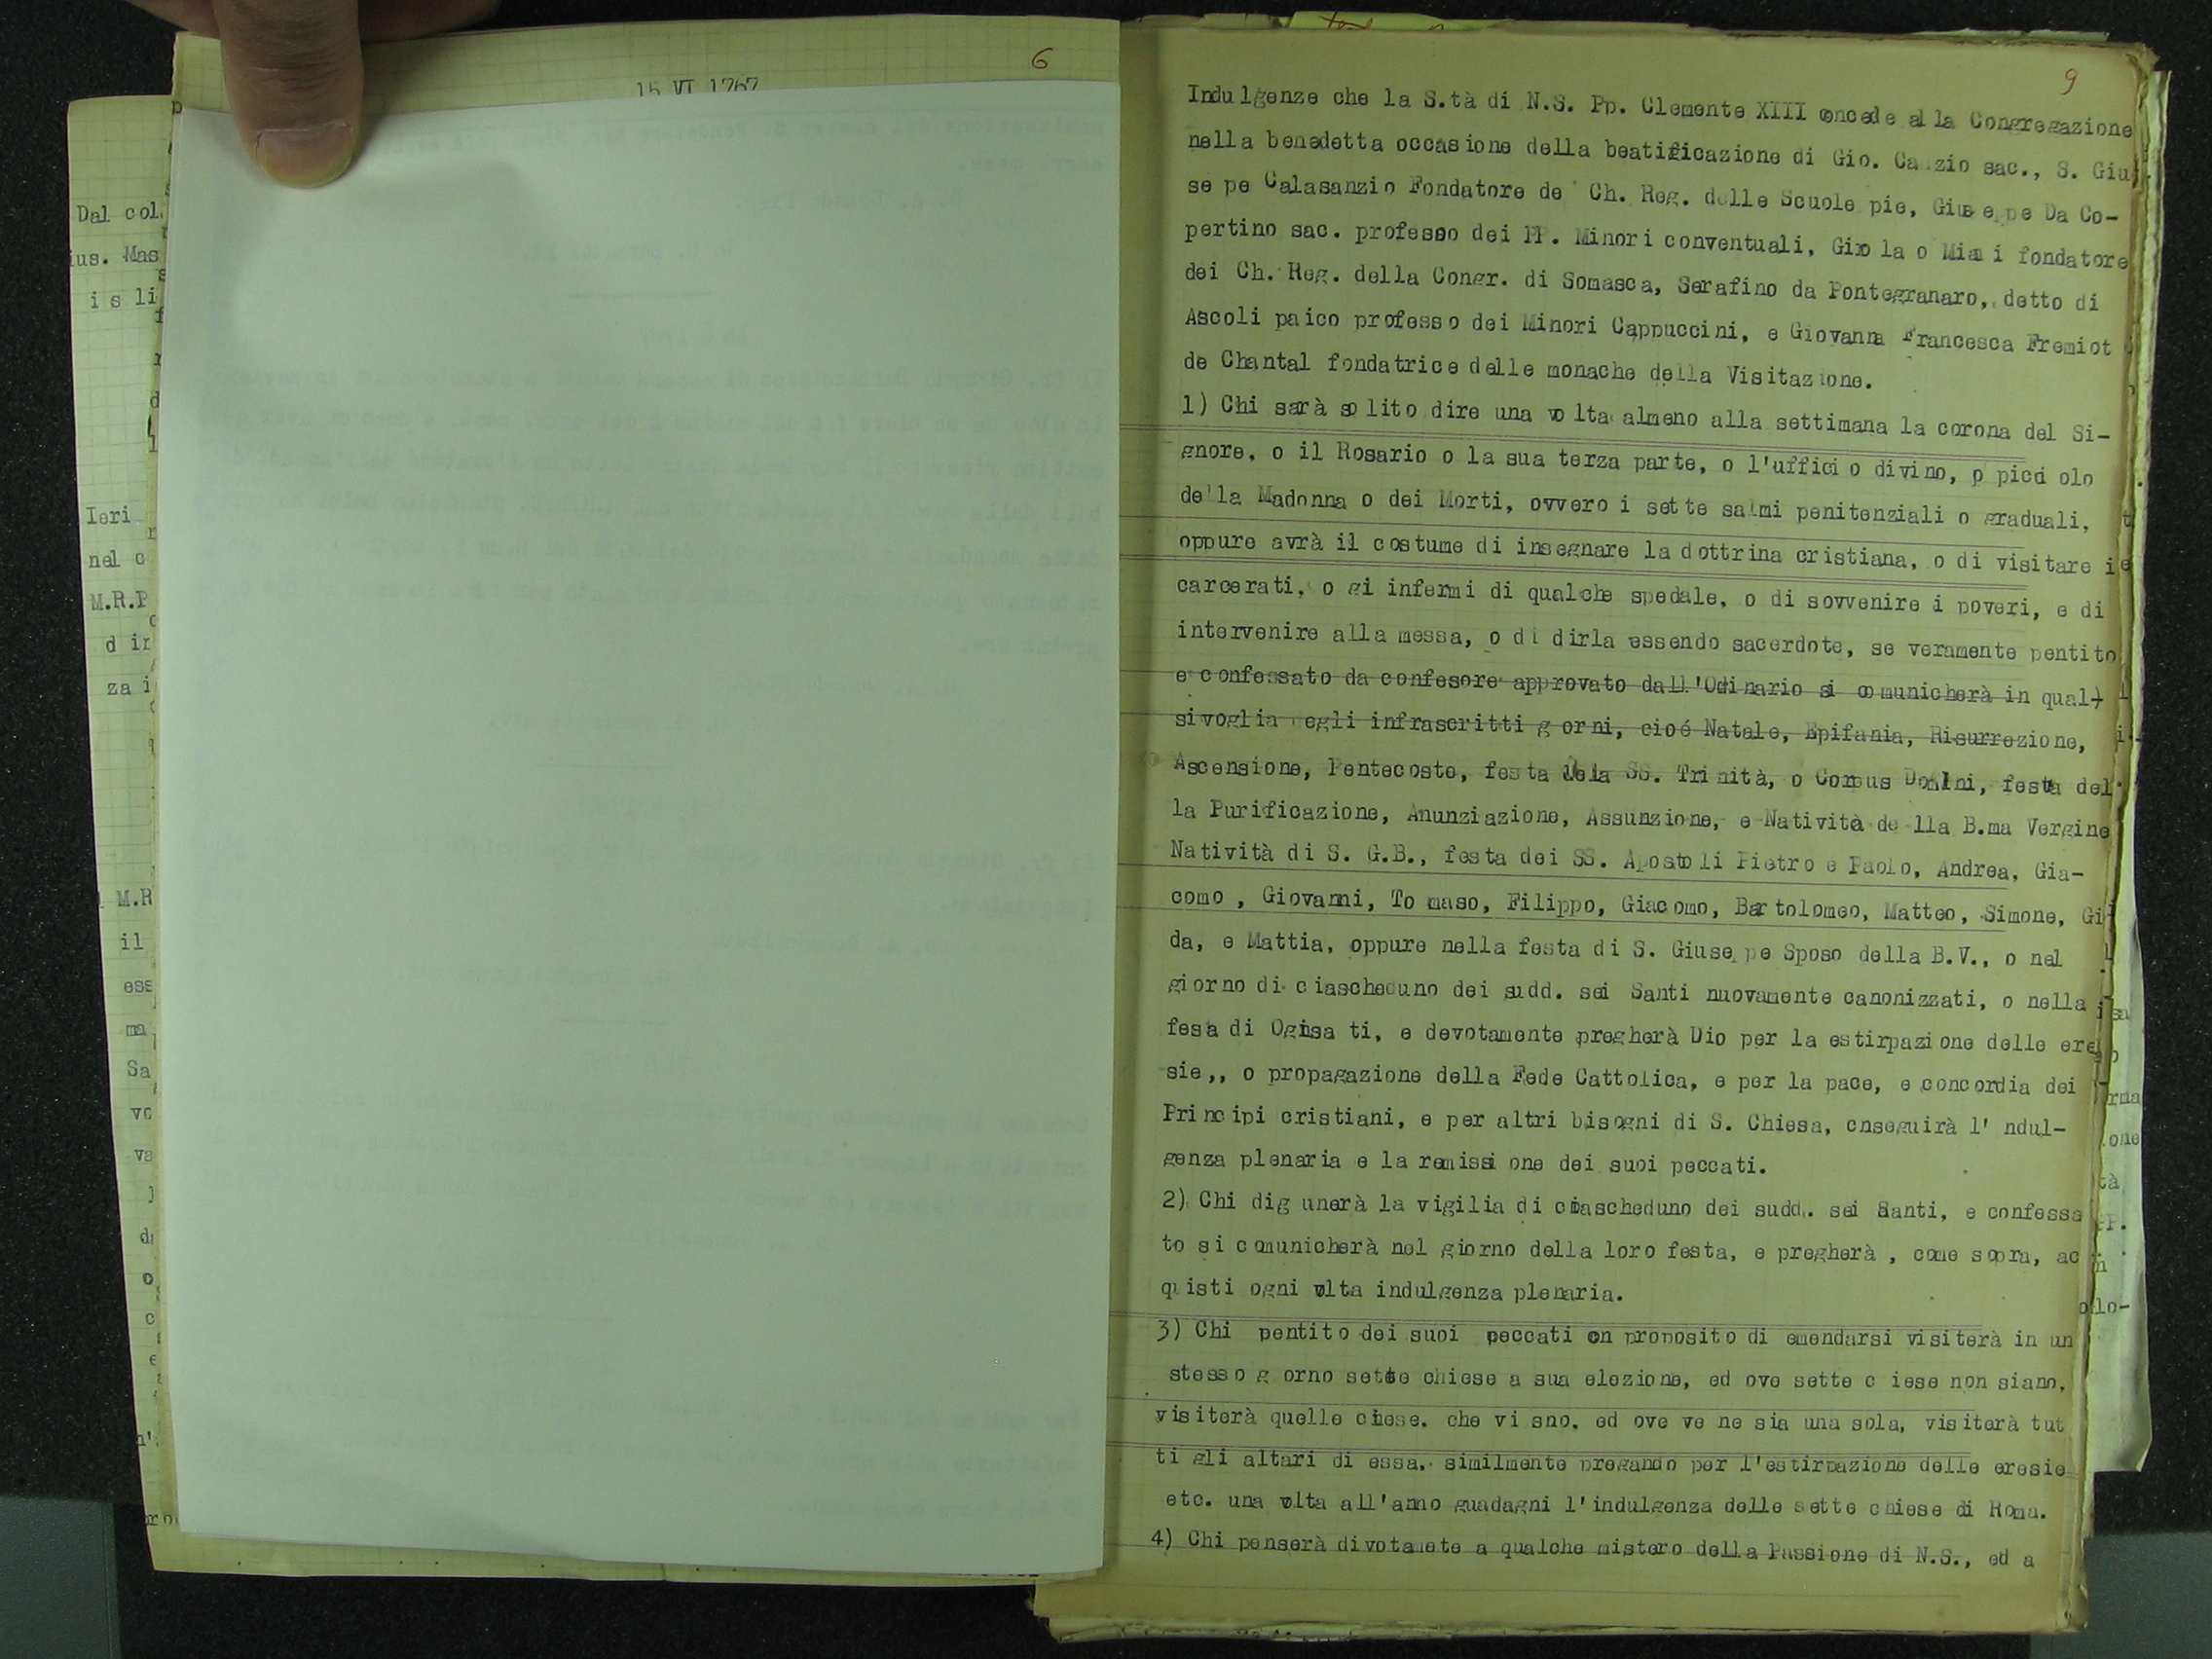 6
15 VI 1767
Dal col
ius. Mas
i s li
Ieri
nel c
M.R.P
d in
za i
M.R
il
ess
ma
Sa
vo
va
9
Indulgenze che la S.tà di N.S. Pp. Clemente XIII oncede alla Congregazione
nella benedetta occasione della beatificazione di Gio. Ca zio sac., S. Giu
se pe Calasanzio Fondatore de' Ch. Reg. delle Scuole pie, Giuseppe Da Co-
pertino sac. professo dei PP. Minori conventuali, Giro la o Miani fondatore
dei Ch. Reg. della Congr. di Somasca, Serafino da Pontegranaro, detto di
Ascoli paico professo dei Minori Cappuccini, e Giovanna Francesca Fremiot
de Chantal fondatrice delle monache della Visitazione.
1) Chi sarà solito dire una volta almeno alla settimana la corona del Si-
gnore, o il Rosario o la sua terza parte, o l'ufficio divino, o picci olo
della Madonna o dei Morti, ovvero i sette salmi penitenziali o graduali,
oppure avrà il costume di insegnare la dottrina cristiana, o di visitare i
carcerati, o gi infermi di qualche spedale, o di sovvenire i poveri, e di
intervenire alla messa, o di dirla essendo sacerdote, se veramente pentito
e confessato da confesore approvato dall'Odinario si comunicherà in qual)
sivoglia egli infrascritti g orni, cioé Natale, Epifania, Risurrezione,
Ascensione, Pentecoste, festa della SS. Trinità, o Corpus Domini, festa del
la Purificazione, Anunziazione, Assunzione, e Natività della B.ma Vergine
Natività di S. G.B., festa dei SS. Apostoli Pietro e Paolo, Andrea, Gia-
como , Giovanni, To maso, Filippo, Giacomo, Bartolomeo, Matteo, Simone, Gi
da, e Mattia, oppure nella festa di S. Giuse pe Sposo della B.V., o nel
giorno di ciascheduno dei sudd. sei Santi nuovamente canonizzati, o nella
fesa di Ognisa ti, e devotamente pregherà Dio per la estirpazione delle ere
sie,, o propagazione della Fede Cattolica, e per la pace, e concordia dei
Principi cristiani, e per altri bisogni di S. Chiesa, cnseguirà l' ndul-
genza plenaria e la remissi one dei suoi peccati.
2) Chi dig unerà la vigilia di ciascheduno dei sudd. sei Santi, e confessa
to si comunicherà nel giorno della loro festa, e pregherà , come sopra, ac
quisti ogni volta indulgenza plenaria.
3) Chi pentito dei suoi peccati on proposito di emendarsi visiterà in un
stesso g orno sette chiese a sua elezione, ed ove sette c iese non siano,
visiterà quelle chese, che vi sno, ed ove ve ne sia una sola, visiterà tut
ti gli altari di essa, similmente pregando per l'estirpazione delle eresie
etc. una volta all'anno guadagni l'indulgenza delle sette chiese di Roma.
4) Chi penserà divotamete a qualche mistero della Passione di N.S., ed a